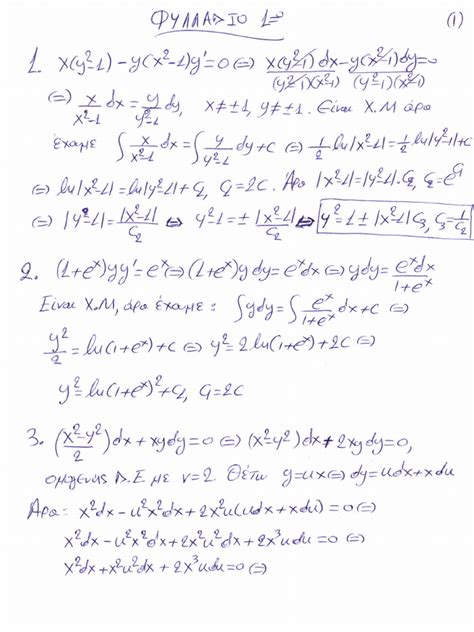 ΦΥΛΛΑΔΙΟ 1ο (1)
1. x(y²-1)-y(x²-1)y'=0 ⇔ x(y²-1)dx/(y²-1)(x²-1) - y(x²-1)dy/(y²-1)(x²-1) =0
⇔ x/(x²-1) dx = y/(y²-1) dy, x≠±1, y≠±1. Είναι Χ.Μ άρα
έχομε ∫ x/(x²-1) dx = ∫ y/(y²-1) dy + c ⇔ 1/2 ln|x²-1| = 1/2 ln|y²-1|+c
⇔ ln|x²-1| = ln|y²-1|+C₂, C₂=2C. Άρα |x²-1|=|y²-1|.C₂, C₂=e^C₁
⇔ |y²-1| = |x²-1|/C₂ ⇔ y²-1 = ± |x²-1|/C₂ ⇔ y²=1±|x²-1|C₃, C₃=1/C₂
2. (1+eˣ)yy'=eˣ ⇔ (1+eˣ)ydy=eˣdx ⇔ ydy= eˣdx/(1+eˣ)
Είναι Χ.Μ, άρα έχομε: ∫ydy=∫ eˣ/(1+eˣ) dx+c ⇔
y²/2 = ln(1+eˣ)+c ⇔ y²=2ln(1+eˣ)+2C ⇔
y²=ln(1+eˣ)²+C₁, C₁=2C
3. ((x²-y²)/2)dx + xydy=0 ⇔ (x²-y²)dx+2xydy=0,
ομογενης Δ.Ε με ν=2. Θέτω y=ux ⇔ dy=udx+xdu
Άρα: x²dx-u²x²dx+2x²u(udx+xdu)=0 ⇔
x²dx-u²x²dx+2x²u²dx+2x³udu=0 ⇔
x²dx+x²u²dx+2x³udu=0 ⇔